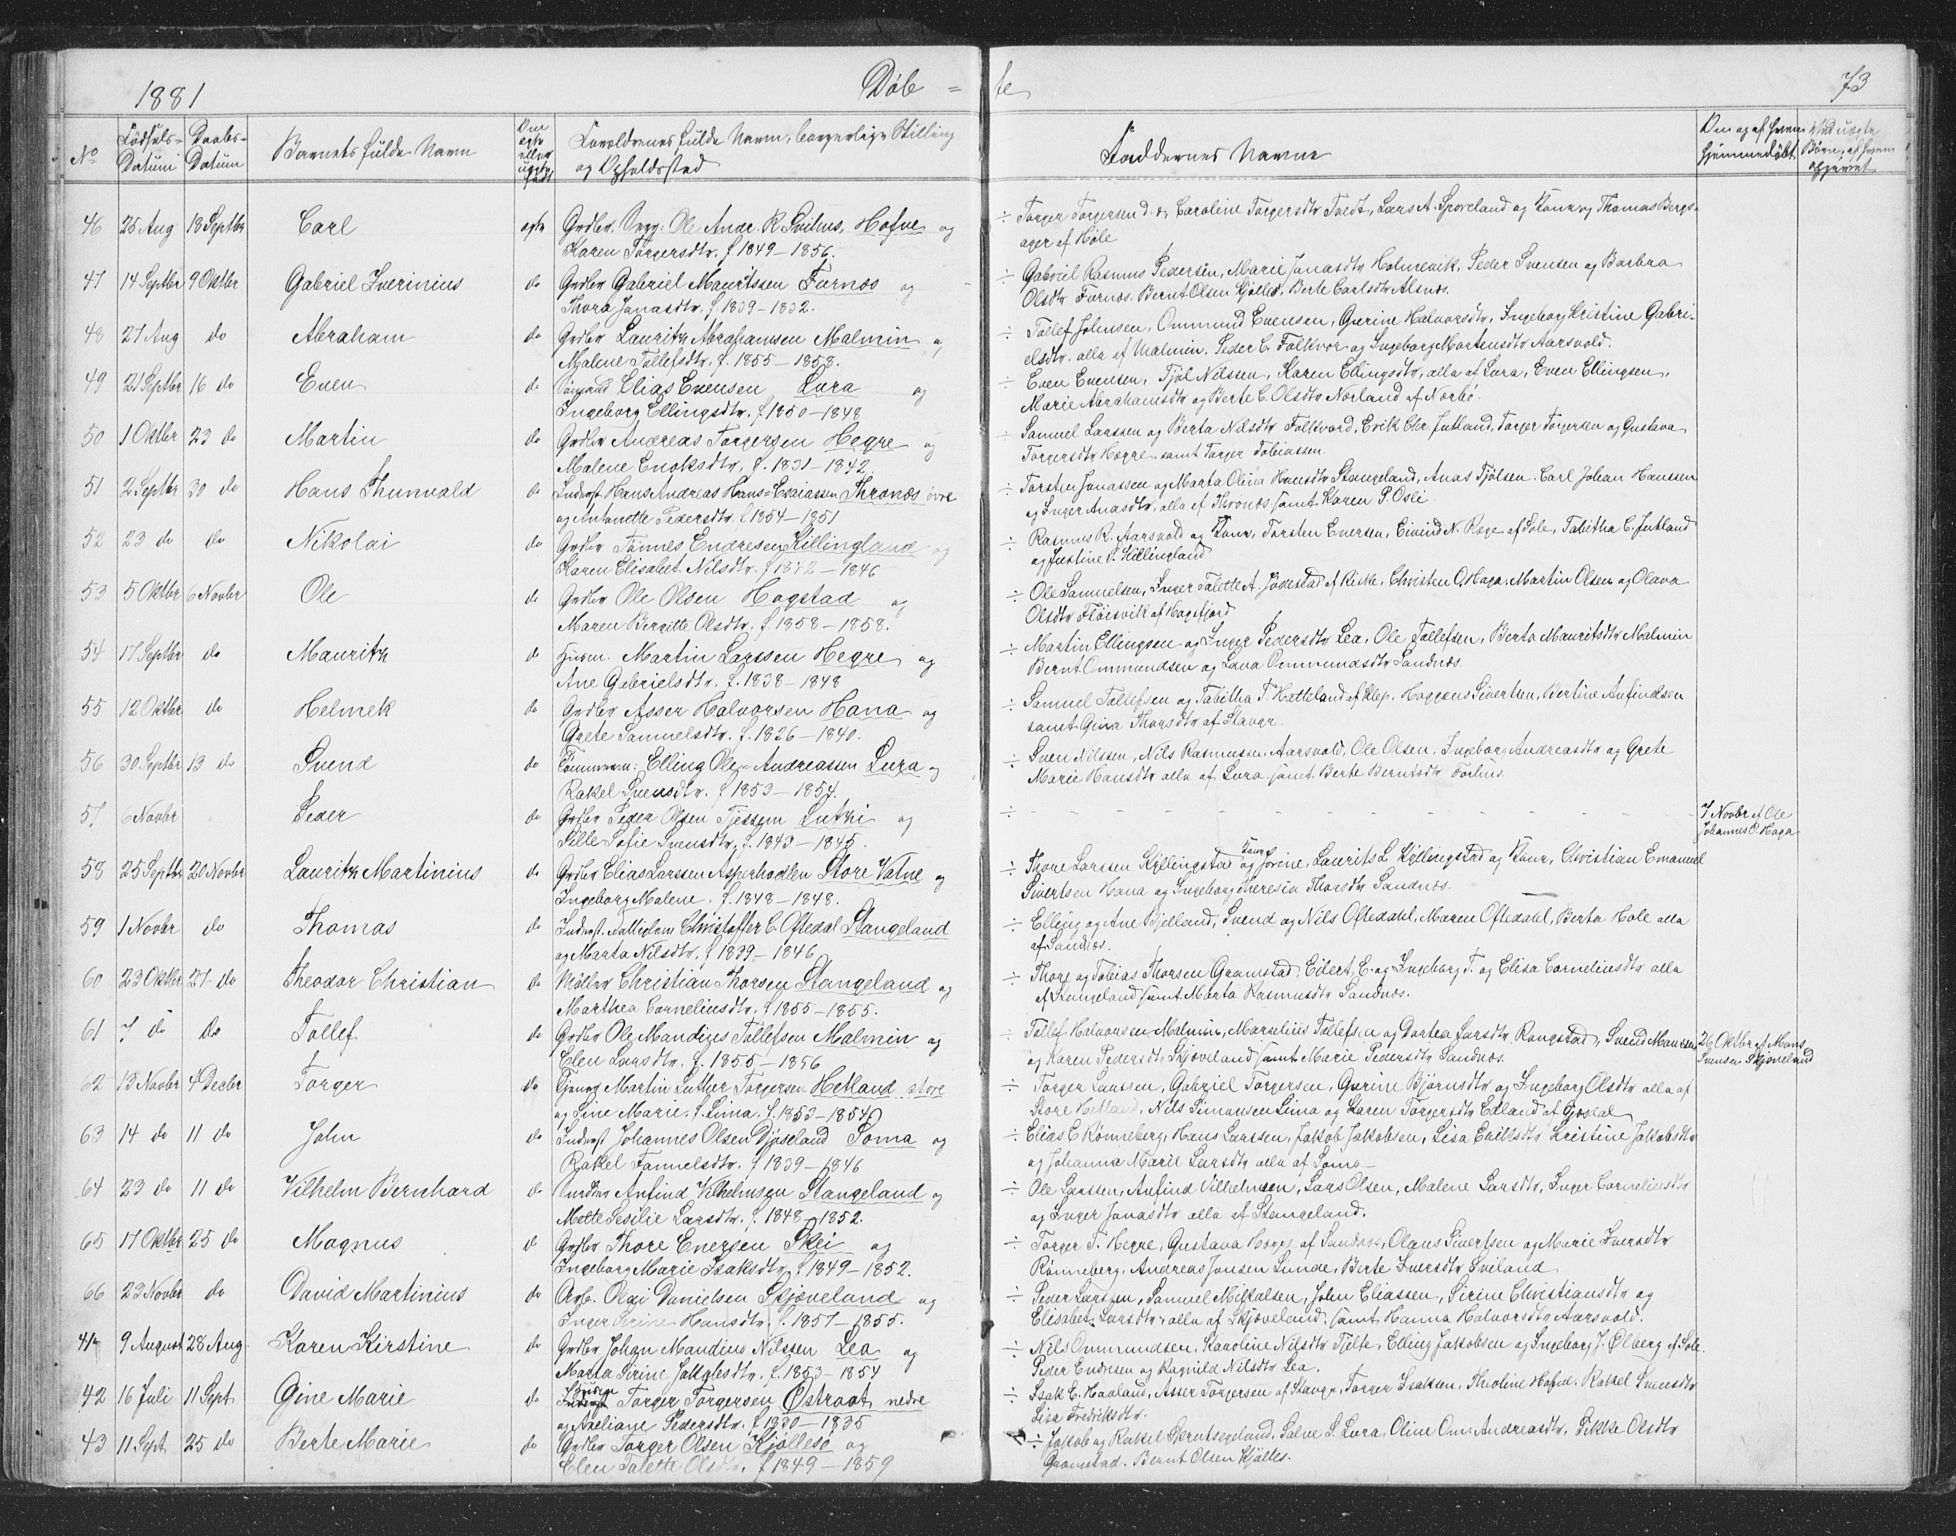 1881 Døb = te 73
No Fødsels-Datum Daabs-Datum Barnets fulde Navn Om ægte eller uægte født Forældrenes fulde Navn, borgerlige Stilling og Opholdssted Faddernes Navne Om og af hvem hjemmedøbt Ved uægte Børn, af hvem opgivet
46 25 Aug 18 Septbr Carl ægte Grdbr. Ole Andr. R. Hofve og
Karen Torgersdtr. f. 1849 – 1856.
÷ Torger Torgersen Caroline Torgersdtr Tvedt, Lars A. Sporeland og Kone og Thomas Bergs-
ager af Høle
47 14 Septbr 9 Oktbr Gabriel Iverinius do Grdbr Gabriel Mauritssen Furnæs og
Thora Jonasdtr. f. 1839 – 1832.
÷ Gabriel Rasmus Pedersen, Marie Jonasdtr Holmevik, Peder Svensen og Barbra
Olsdtr Furnæs. Bernt Olsen Kjølles, Berte Carlsdtr Alsnæs.
48 27 Aug do Abraham do Grdbr Lauritz Abrahamsen Malmin og
Malene Tollefsdtr. f. 1855 – 1858.
÷ Tollef Johnsen, Ommund Evensen, Gurine Halvorsdtr, Ingeborg Kristine Gabri-
elsdtr. alle af Malmin, Peder C. Folkvor og Ingeborg Mortensdtr Aarsvold.
49 21 Septbr 16 do Even do Elias Evensen Lura og
Ingeborg Ellingsdtr. f. 1850 – 1848
÷ Even Evensen, Tjøl Nilssen, Karen Ellingsdtr, alle af Lura, Even Ellingsen,
Marie Abrahamsdtr og Berte C. Olsdtr Norland af Norbø.
50 1 Oktbr 23 do Martin do Grdbr Andreas Torgersen Hegre og
Malene Enoksdtr. f. 1831 – 1842.
÷ Samuel Larssen og Berta Nilsdtr Folkvord, Erik Chr. Jutland, Torger Torgersen og Gustava
Torgersdtr Høgre samt Torger Tobiassen.
51 2 Septbr 30 do Hans Thunvald do Inderst Hans Andreas Hans=Esaiassen Thronæs övre
og Antonette Pedersdtr. f. 1854 – 1851
÷ Torsten Jonassen og Marta Olina Hansdtr Stangeland, Anas Tjølsen, Carl Johan Hanssen
og Inger Anasdtr, alle af Thronæs samt Karen P. Osli
52 23 do do Nikolai do Grdbr Tønnes Endresen Killingland og
Karen Elisabet Nilsdtr. f. – 1846
÷ Rasmus R. Aarsvold og Kone, Torsten Eversen, Eivind N. Rege af Sole, Tabitha C. Jutland
og Justine S. Killingland
53 5 Oktbr 6 Novbr Ole do Grdbr Ole Olsen Hogstad og
Maren Bergitte Olsdtr. f. 1858 – 1858.
÷ Ole Samuelsen, Inger Talette A. Jodestad af Riske, Christen O. Haga, Martin Olsen og Olava
Olsdtr Fløisvik af Høgsfjord
54 17 Septbr do Mauritz do Husm. Martin Larssen Hegre og
Ane Gabrielsdtr. f. 1838 – 1848
÷ Martin Ellingsen og Inger Pedersdtr Lea, Ole Tollefsen, Berta Mauritsdtr Malmin
Bernt Ommundsen og Lava Ommundsdtr Sandnæs.
55 12 Oktbr do Helmek do Grdbr Asser Halvorsen Hana og
Grete Samuelsdtr. f. 1826 – 1840.
÷ Samuel Tollefsen og Tabitha T. Hatteland af Klep, Haggæus Sivertsen, Bertine Anfindsen
samt Gina Thorsdtr af Stavgr.
56 30 Septbr 13 do Svend do Tømmerm: Elling Ole Andreassen Lura og
Rakel Svensdtr. f. 1853 – 1854.
÷ Sven Nilssen, Nils Rasmussen Aarsvold, Ole Olsen, Ingeborg Andreasdtr og Grete
Marie Hansdtr alle af Lura samt Berte Berntsdtr Forlus.
57 6 Novbr Peder do Grdbr Peder Olsen Tjessem Lutsi og
Sille Sofie Svensdtr. f. 1843 – 1845
÷ 7 Novbr af Ole Johannes O. Haga
58 25 Septbr 20 Novbr Lauritz Martinius do Grdbr Elias Larssen Asperhodlen Store Vatne og
Ingeborg Malene. f. 1848 – 1848.
÷ Thore Larssen Kyllingstad Kone og Jorine, Laurits L. Kyllingstad og Kone, Christian Emanuel
Sivertsen Hana og Ingeborg Theresia Thorsdtr Sandnæs.
59 1 Novbr do Thomas do Inderst. Christoffer C. Oftedal Stangeland
og Marta Nilsdtr. f. 1839 – 1846
÷ Elling og Ane Bjelland, Svend og Nils Oftedahl, Maren Oftedahl, Berta Hole alle
af Sandnæs.
60 23 Oktbr 27 do Theodor Christian do Møller Christian Thorsen Stangeland og
Marthea Corneliusdtr. f. 1855 – 1855.
÷ Thore og Tobias Thorsen Gramstad, Eilert E. og Ingeborg T. og Elisa Corneliusdtr alle
af Stangeland samt Marta Rasmusdtr Sandnæs.
61 7 do do Tollef do Grdbr Ole Mandius Tollefsen Malmin og
Elen Larsdtr. f. 1855 – 1856
÷ Tollef Halvorsen Malmin, Marselius Tollefsen og Dortea Larsdtr Rongstad, Svend Monssen
og Karen Pedersdtr Skjæveland samt Marie Pedersdtr Sandnæs.
26 Oktbr af Mons Svensen Skjæveland
62 13 Novbr 4 Decbr Torger do Martin Luther Torgersen Hetland store
og Sine Marie f. Lima. f. 1853 – 1854
÷ Torger Larssen, Gabriel Torgersen, Gurine Bjørnsdtr og Ingeborg Olsdtr alle af
Store Hetland, Nils Simonsen Lima og Karen Torgersdtr Edland af Gjesdal
63 14 do 11 do John do Inderst Johannes Olsen Djøseland Soma og
Rakel Tønnelsdtr. f. 1839 – 1846
÷ Elias E. Rønneberg, Hans Larssen, Jakob Jakobsen, Lisa Eriksdtr, Kristine Jakobsdtr
og Johanna Marie Larsdtr alle af Somo
64 23 do 11 do Vilhelm Bernhard do Anfind Vilhelmsen Stangeland og
Mette Sesilie Larsdtr. f. 1848 – 1852.
÷ Ole Larssen, Anfind Vilhelmsen, Lars Olsen, Malene Larsdtr, Inger Corneliusdtr
og Inger Jonasdtr alle af Stangeland.
65 17 Oktbr 25 do Magnus do Grdbr Thore Enersen Skei og
Ingeborg Marie Isaksdtr, f. 1849 – 1852.
÷ Torger T. Hegre, Gustava Hegre af Sandnæs, Olaus Sivertsen og Marie Iversdtr
Rønneberg, Andreas Jonsen Lunde, Berte Iversdtr Sviland
66 23 Novbr do David Martinius do Arb. Olai Danielsen Skjæveland og
Inger Serine Hansdtr. f. 1857 – 1855.
÷ Peder Larssen, Samuel Mikalsen, John Eliassen, Sirine Christiansdtr og
Elisabet Larsdtr, alle af Skjæveland, samt Hanna Halvorsdtr Aarsvold.
41 9 August 28 Aug. Karen Kirstine do Grdbr Johan Mandius Nilssen Lea og
Marta Sirine Jakobsdtr. f. 1853 – 1854
÷ Nils Ommundsen, Karoline Nilsdtr Tjelte, Elling Jakobsen og Ingeborg J. Ølberg af Sole
Peder Endresen og Ragnild Nilsdtr Lea.
42 16 Juli 11 Sept Gine Marie do Torger Torgersen Østraat nedre
og Axeliane Pedersdtr. f. 1830 – 1835
÷ Isak E. Haaland, Asser Torgersen af Stavgr, Torger Isaksen, Theoline Hofve, Rakel Svensdtr
Lisa Fredriksdtr.
43 11 Sept. 25 do Berte Marie do Grdbr Torger Olsen Kjøllesø og
Elen Talette Olsdtr. f. 1849 – 1859
÷ Jakob og Rakel Skrutsegeland, Salve S. Lura, Oline Om. Andreasdtr, Sikke Olsdtr
Gramstad. Bernt Olsen Kjølles.